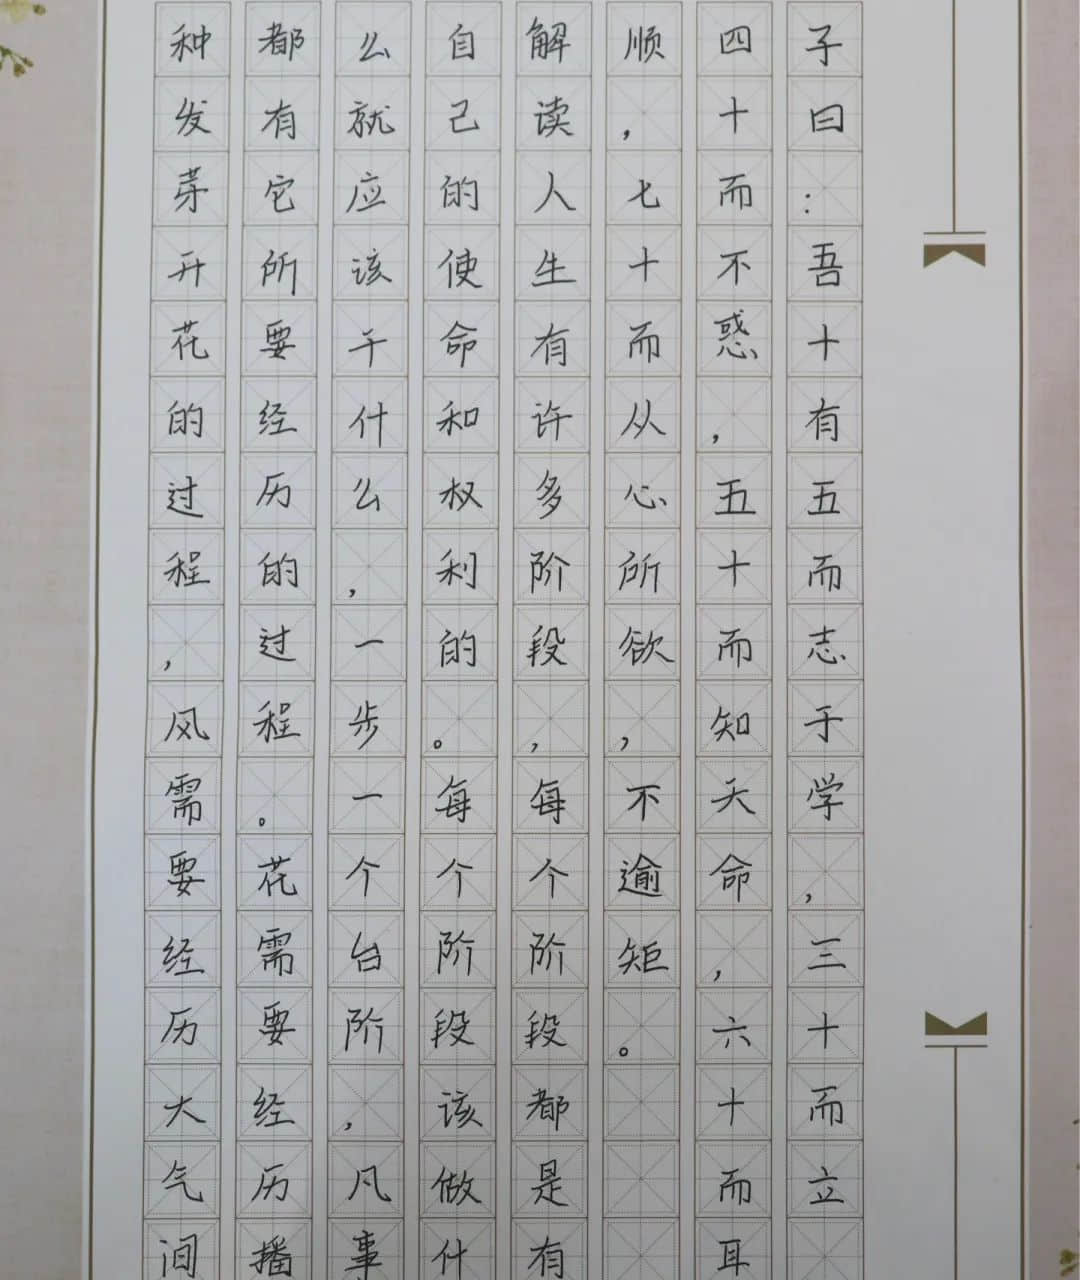 子曰：吾十有五而志于学，三十而立
四十而不惑，五十而知天命，六十而耳
顺，七十而从心所欲，不逾矩。
解读人生有许多阶段，每个阶段都是有
自己的使命和权利的。每个阶段该做什
么就应该干什么，一步一个台阶，凡事
都有它所要经历的过程。花需要经历播
种发芽开花的过程，风需要经历大气间